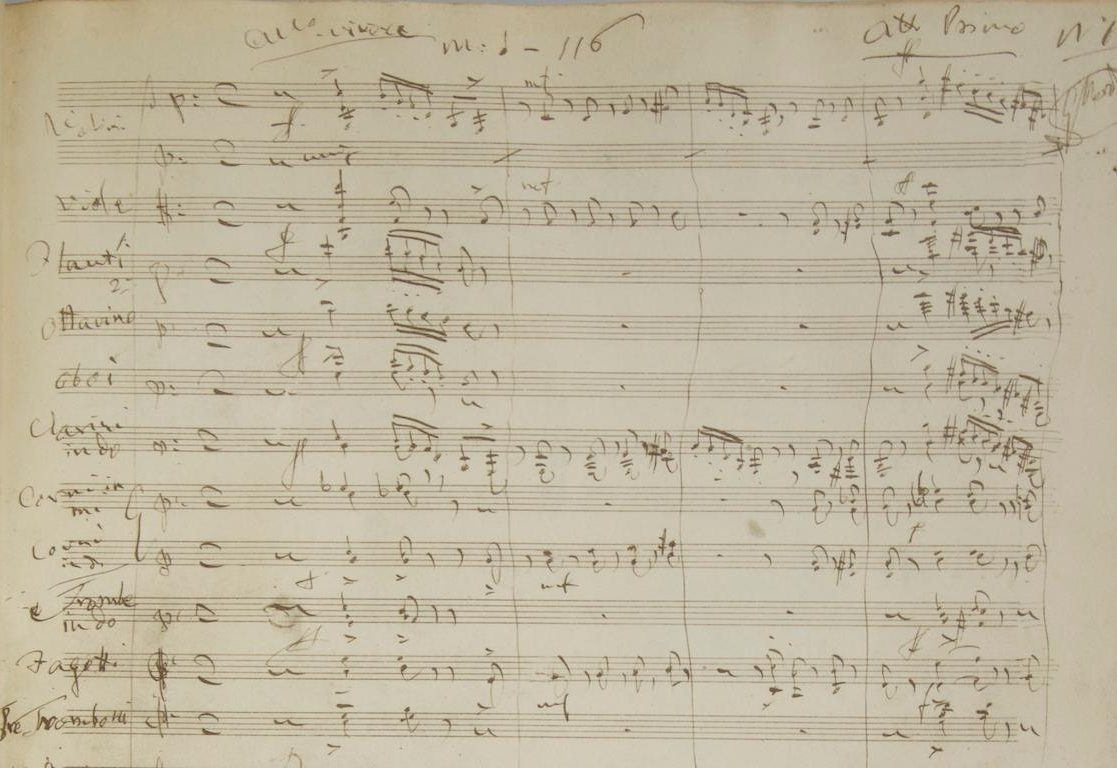 All.º vivace m: ♩ = 116 Atto Primo Nº 1
Violini
mf
unis
Viole
mf
Flauti
2.
Ottavino
Oboi
Clarini
in do
Corni in
mi
Corni
in do
mf
Trombe
in do
Fagotti
mf
Tre Tromboni